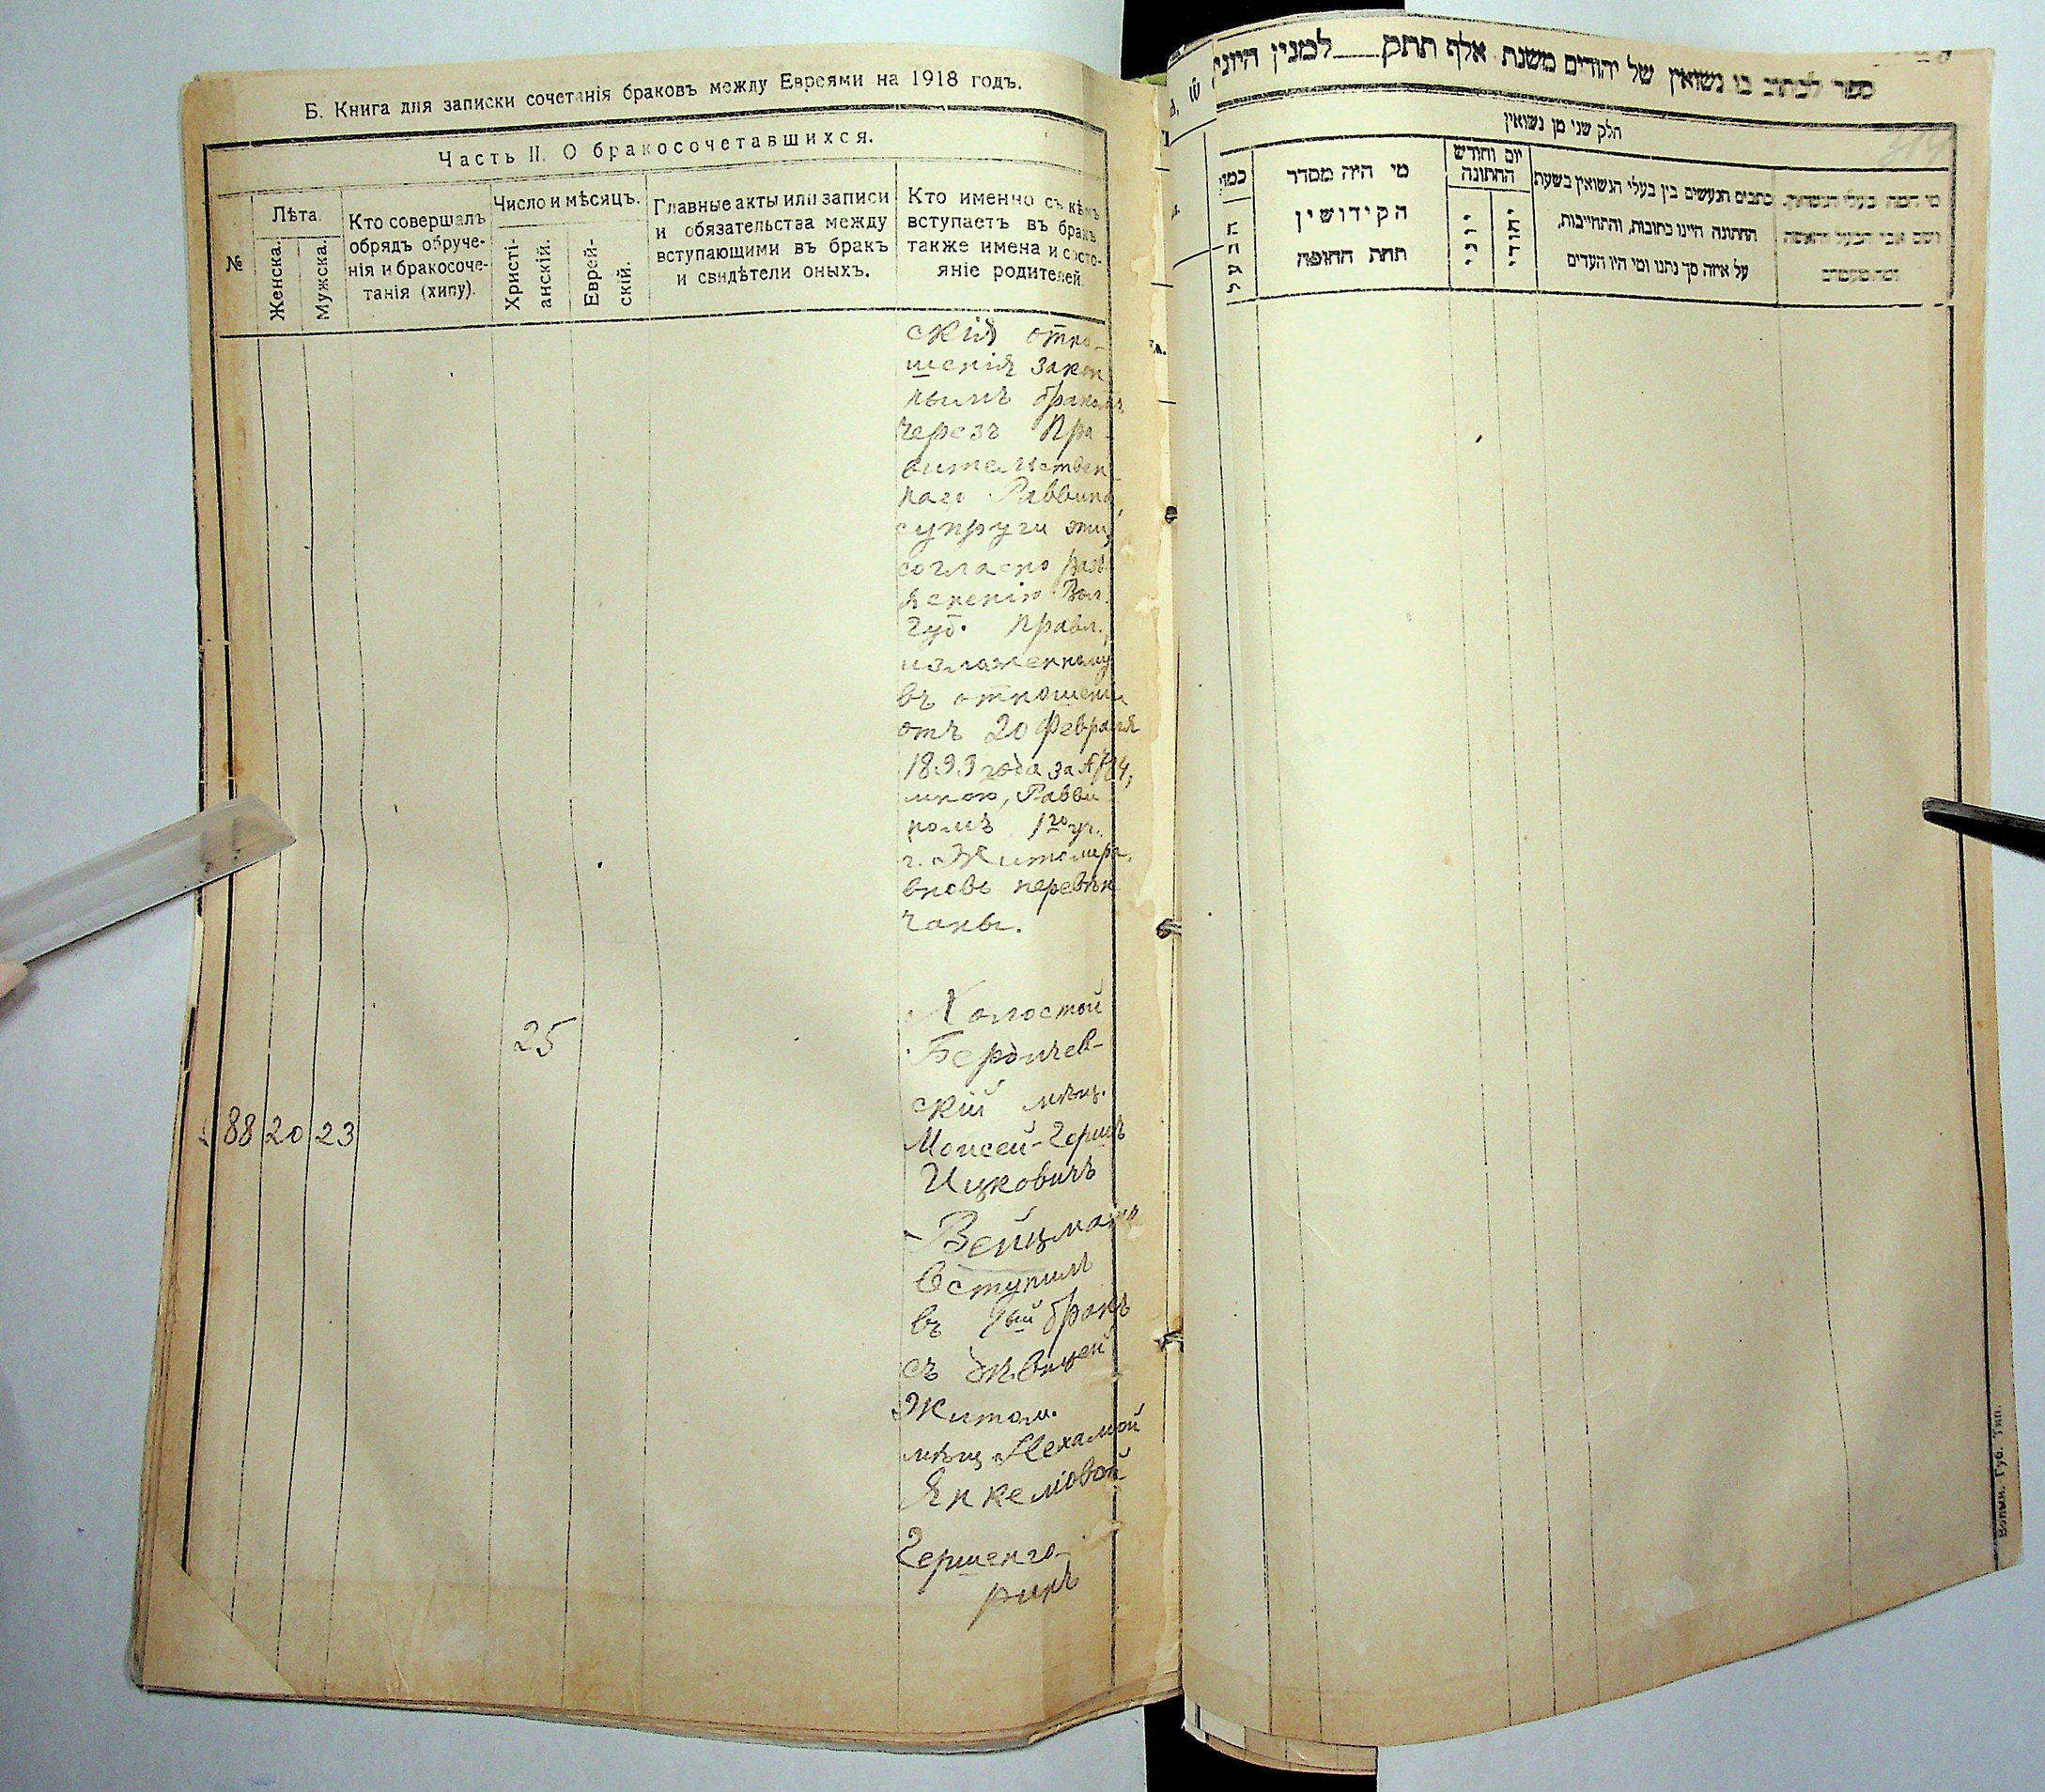 Б. Книга для записки сочетанія браковъ между Евреями на 1918 годъ.
Часть II. О бракосочетавшихся.
№
Лѣта.
Женска.
Мужска.
Кто совершалъ
обрядъ обруче-
нія и бракосоче-
танія (хипу).
Число и мѣсяцъ.
Христі-
анскій.
Еврей-
скій.
Главные акты или записи
и обязательства между
вступающими въ бракъ
и свидѣтели оныхъ.
Кто именно съ кѣмъ
вступаетъ въ бракъ
также имена и состо-
яніе родителей.
скія отно-
шенія закон
нымъ бракомъ
черезъ Пра-
вительствен-
наго Раввина,
супруги эти,
согласно разъ-
ясненію Вол.
Губ. Правл.,
изложенному
въ отношеніи
отъ 20 Февраля
1893 года за №
мною, Равви-
номъ 1го уч.
г. Житомира,
вновь перевѣн-
чаны.
25
88 20 23
Холостой
Бердичев-
скій мѣщ.
Моисей-Гершъ
Ицковичъ
Вейцманъ
вступилъ
въ 1ый бракъ
съ дѣвицей
Житом.
мѣщ Нехамой
Янкелiовой
Гершенго-
ринъ
ספר לכתוב בו נשואין של יהודים משנת אלף תתק למנין היוני
חלק שני מן נשואין
כמו
הבעל
מי היה מסדר
הקידושין
תחת החופה
יום וחודש
החתונה
יוני
יהודי
כתבים הנעשים בין בעלי הנשואין בשעת
החתונה היינו כתובות, והתחייבות,
על איזה סך נתנו ומי היו העדים
Волын. Губ. Тип.